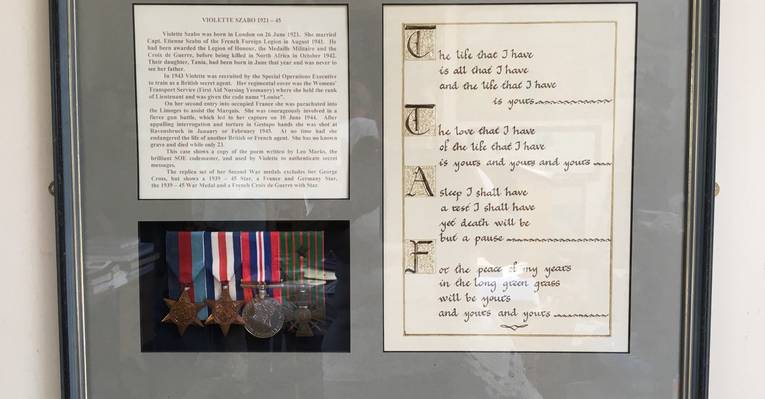 VIOLETTE SZABO 1921 – 45
Violette Szabo was born in London on 26 June 1921. She married
Capt. Etienne Szabo of the French Foreign Legion in August 1941. He
had been awarded the Legion of Honour, the Medaille Militaire and the
Croix de Guerre, before being killed in North Africa in October 1942.
Their daughter, Tania, had been born in June that year and was never to
see her father.
In 1943 Violette was recruited by the Special Operations Executive
to train as a British secret agent. Her regimental cover was the Womens'
Transport Service (First Aid Nursing Yeomanry) where she held the rank
of Lieutenant and was given the code name "Louise".
On her second entry into occupied France she was parachuted into
the Limoges to assist the Marquis. She was courageously involved in a
fierce gun battle, which led to her capture on 10 June 1944. After
appalling interrogation and torture in Gestapo hands she was shot at
Ravensbruck in January or February 1945. At no time had she
endangered the life of another British or French agent. She has no known
grave and died while only 23.
This case shows a copy of the poem written by Leo Marks, the
brilliant SOE codemaster, and used by Violette to authenticate secret
messages.
The replica set of her Second War medals excludes her George
Cross, but shows a 1939 – 45 Star, a France and Germany Star,
the 1939 – 45 War Medal and a French Croix de Guerre with Star.
The life that I have
is all that I have
and the life that I have
is yours
The love that I have
of the life that I have
is yours and yours and yours
Asleep I shall have
a rest I shall have
yet death will be
but a pause
For the peace of my years
in the long green grass
will be yours
and yours and yours